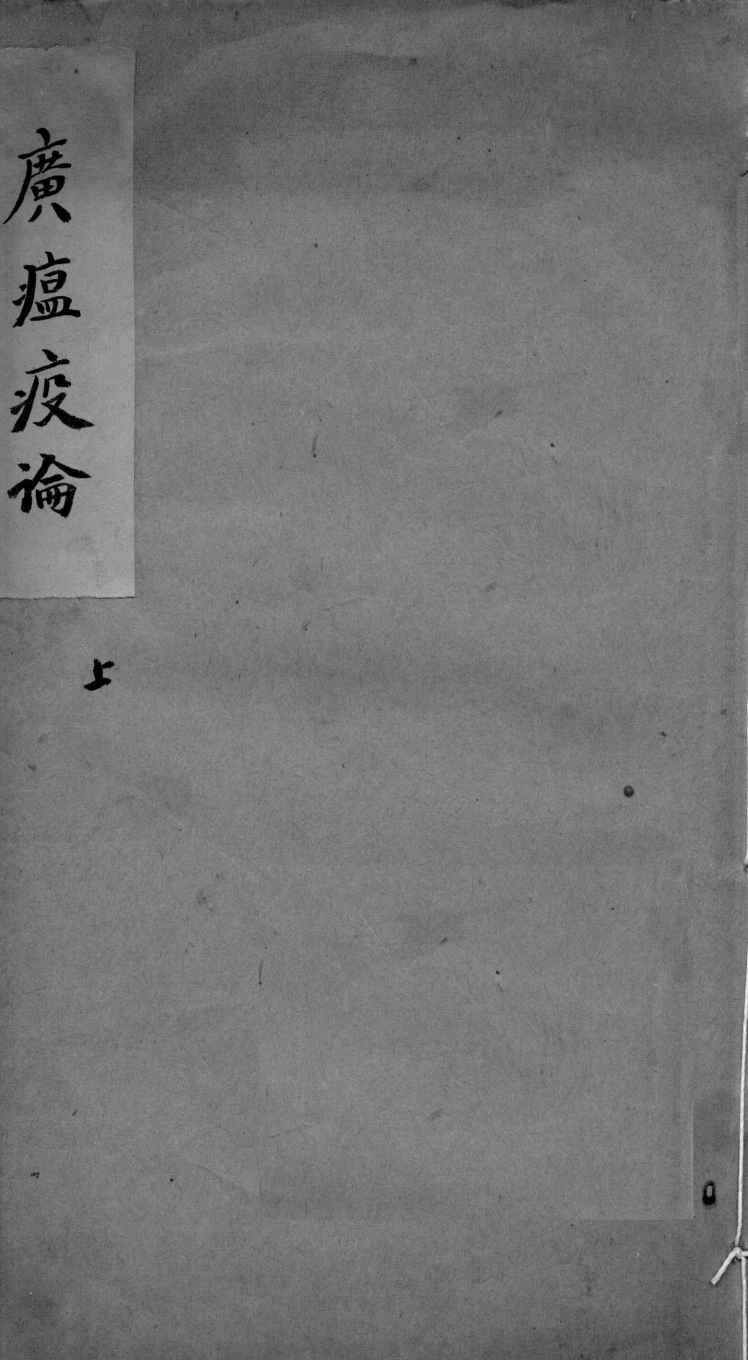 廣瘟疫論
上